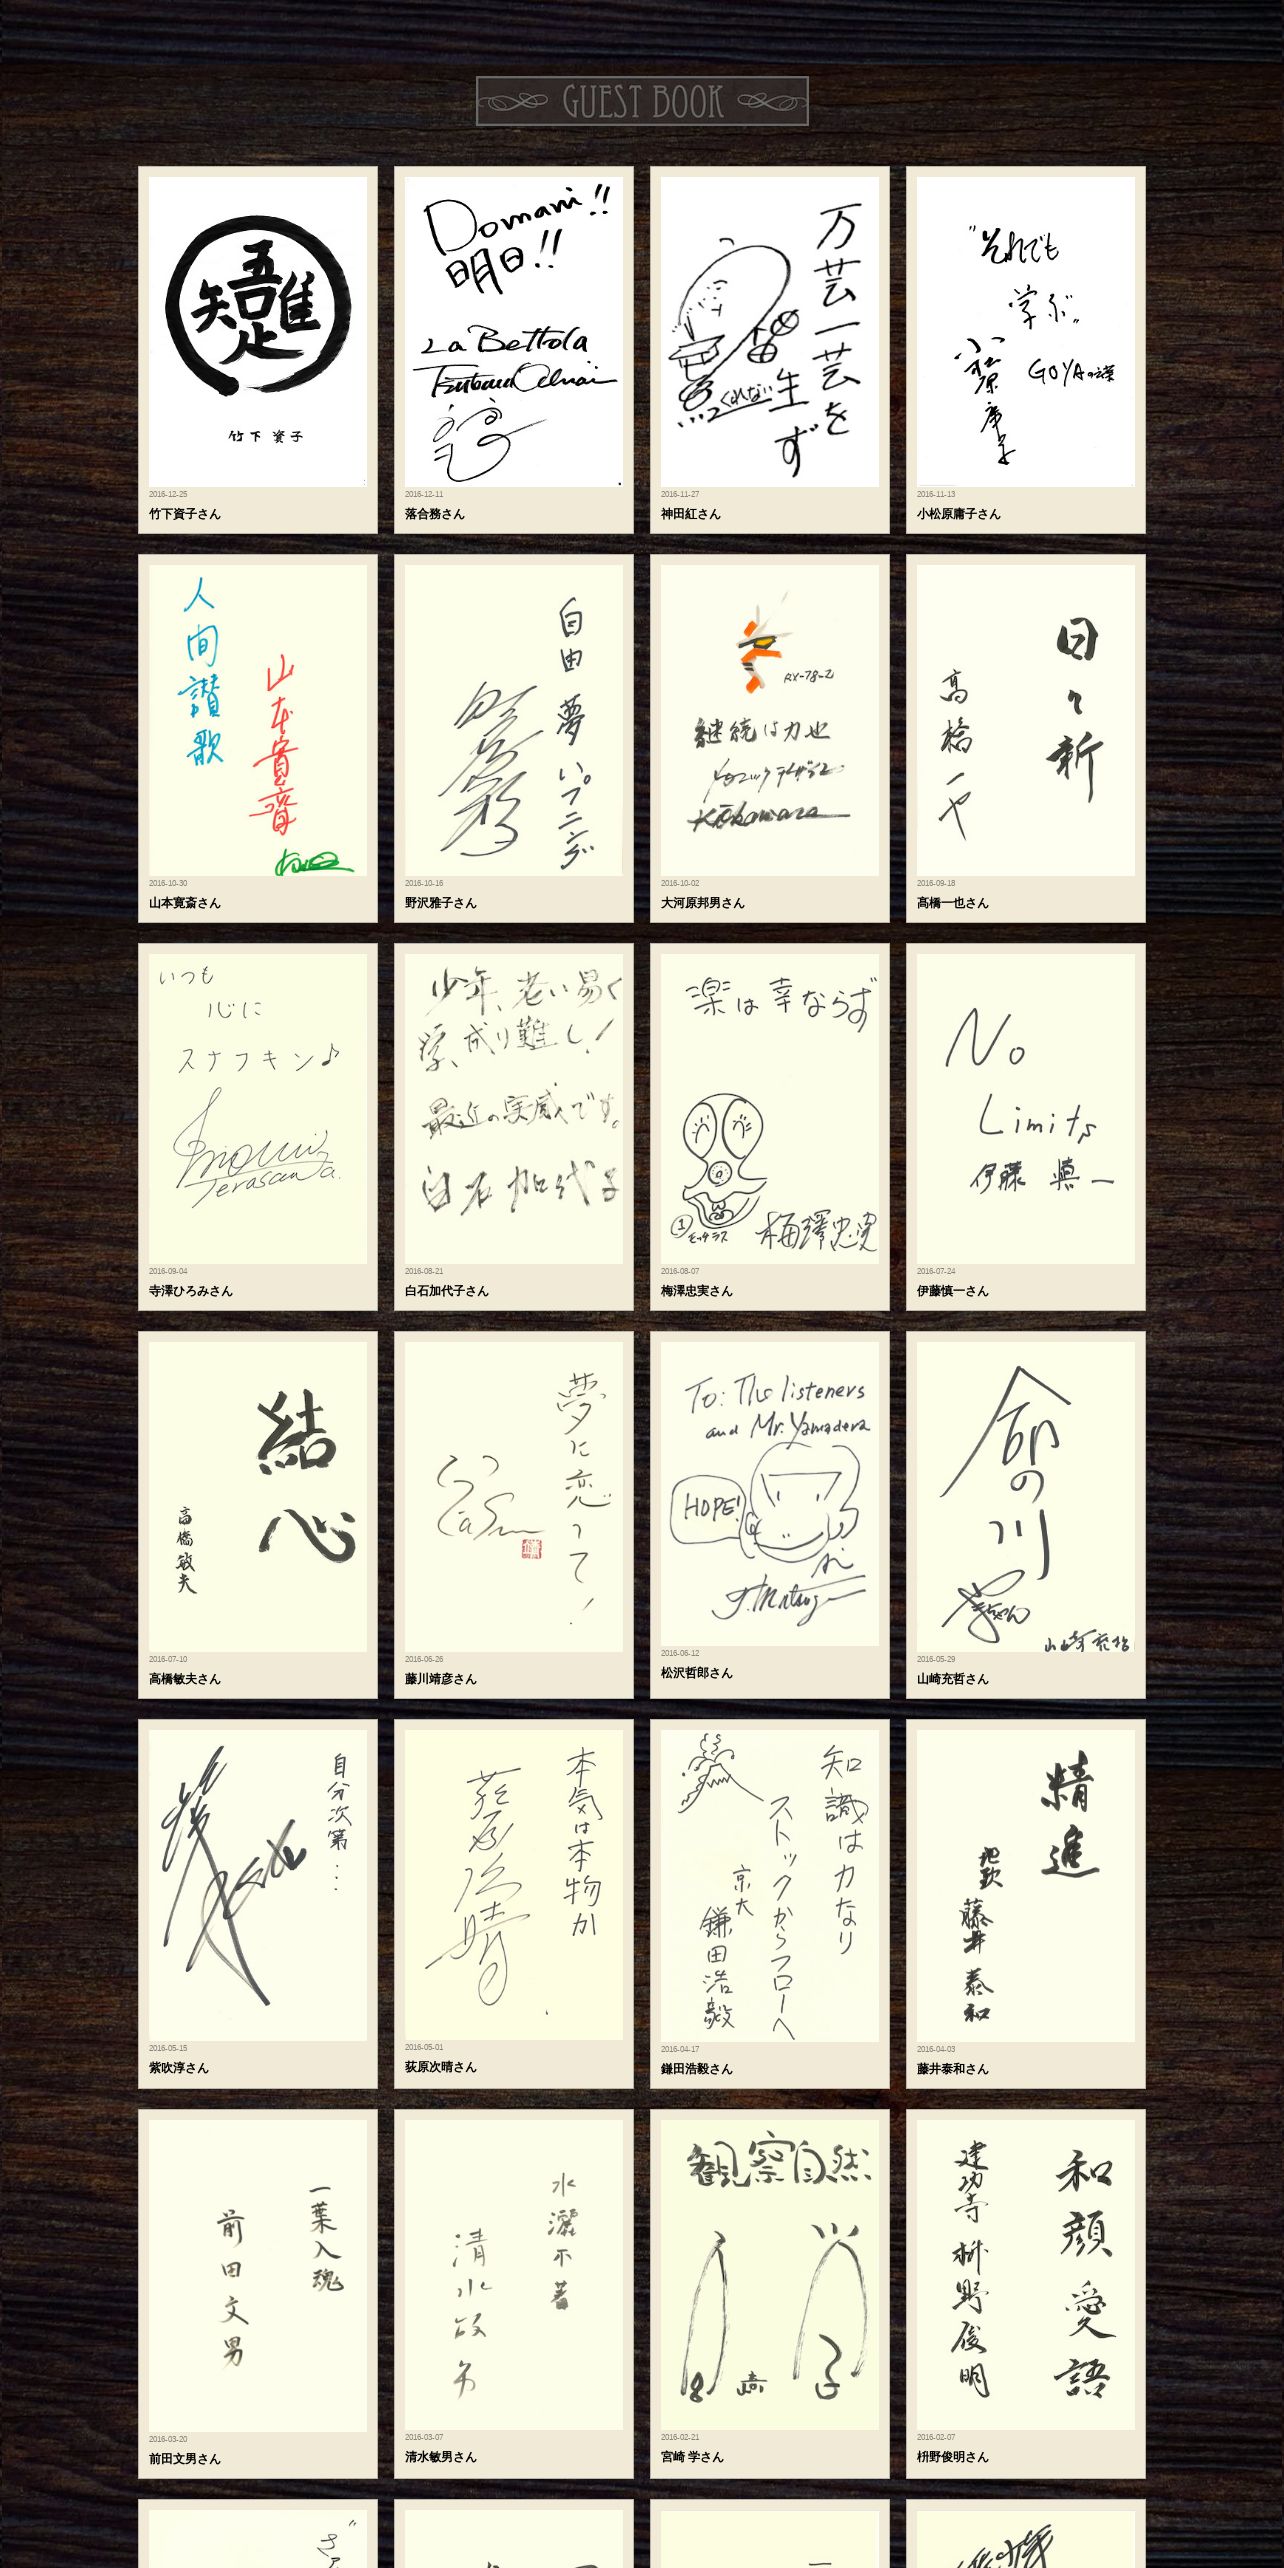 GUEST BOOK
吾唯
知足
竹下 資子
2016-12-25
竹下資子さん
Domani!!
明日!!
La Bettola
2016-12-11
落合務さん
万芸一芸を
生ず
くれない
2016-11-27
神田紅さん
"それでも
学ぶ"
GOYAの言葉
小松原庸子
2016-11-13
小松原庸子さん
人間讃歌
山本寛斎
2016-10-30
山本寛斎さん
自由 夢
野沢雅子
2016-10-16
野沢雅子さん
RX-78-2
継続は力也
メカニックデザイナー
K.Okawara
2016-10-02
大河原邦男さん
日々新
高橋一也
2016-09-18
髙橋一也さん
いつも
心に
スナフキン♪
Hiromi
Terasawa.
2016-09-04
寺澤ひろみさん
少年、老い易く
学、成り難し!
最近の実感です。
白石加代子
2016-08-21
白石加代子さん
楽は幸ならず
梅澤忠実
2016-08-07
梅澤忠実さん
No
Limits
伊藤 慎一
2016-07-24
伊藤慎一さん
結心
高橋敏夫
2016-07-10
高橋敏夫さん
夢に恋って!
2016-06-26
藤川靖彦さん
To: The listeners
and Mr. Yamadera
HOPE!
Ai
T.Matsuzawa
2016-06-12
松沢哲郎さん
命の川
山崎充哲
2016-05-29
山崎充哲さん
自分次第…
2016-05-15
紫吹淳さん
本気は本物か
荻原次晴
2016-05-01
荻原次晴さん
知識は力なり
ストックからフローへ
京大
鎌田浩毅
2016-04-17
鎌田浩毅さん
精進
地歌
藤井泰和
2016-04-03
藤井泰和さん
一葉入魂
前田文男
2016-03-20
前田文男さん
水灑不著
清水敏男
2016-03-07
清水敏男さん
観察自然
宮崎 学
2016-02-21
宮崎 学さん
和顔愛語
建功寺 枡野俊明
2016-02-07
枡野俊明さん